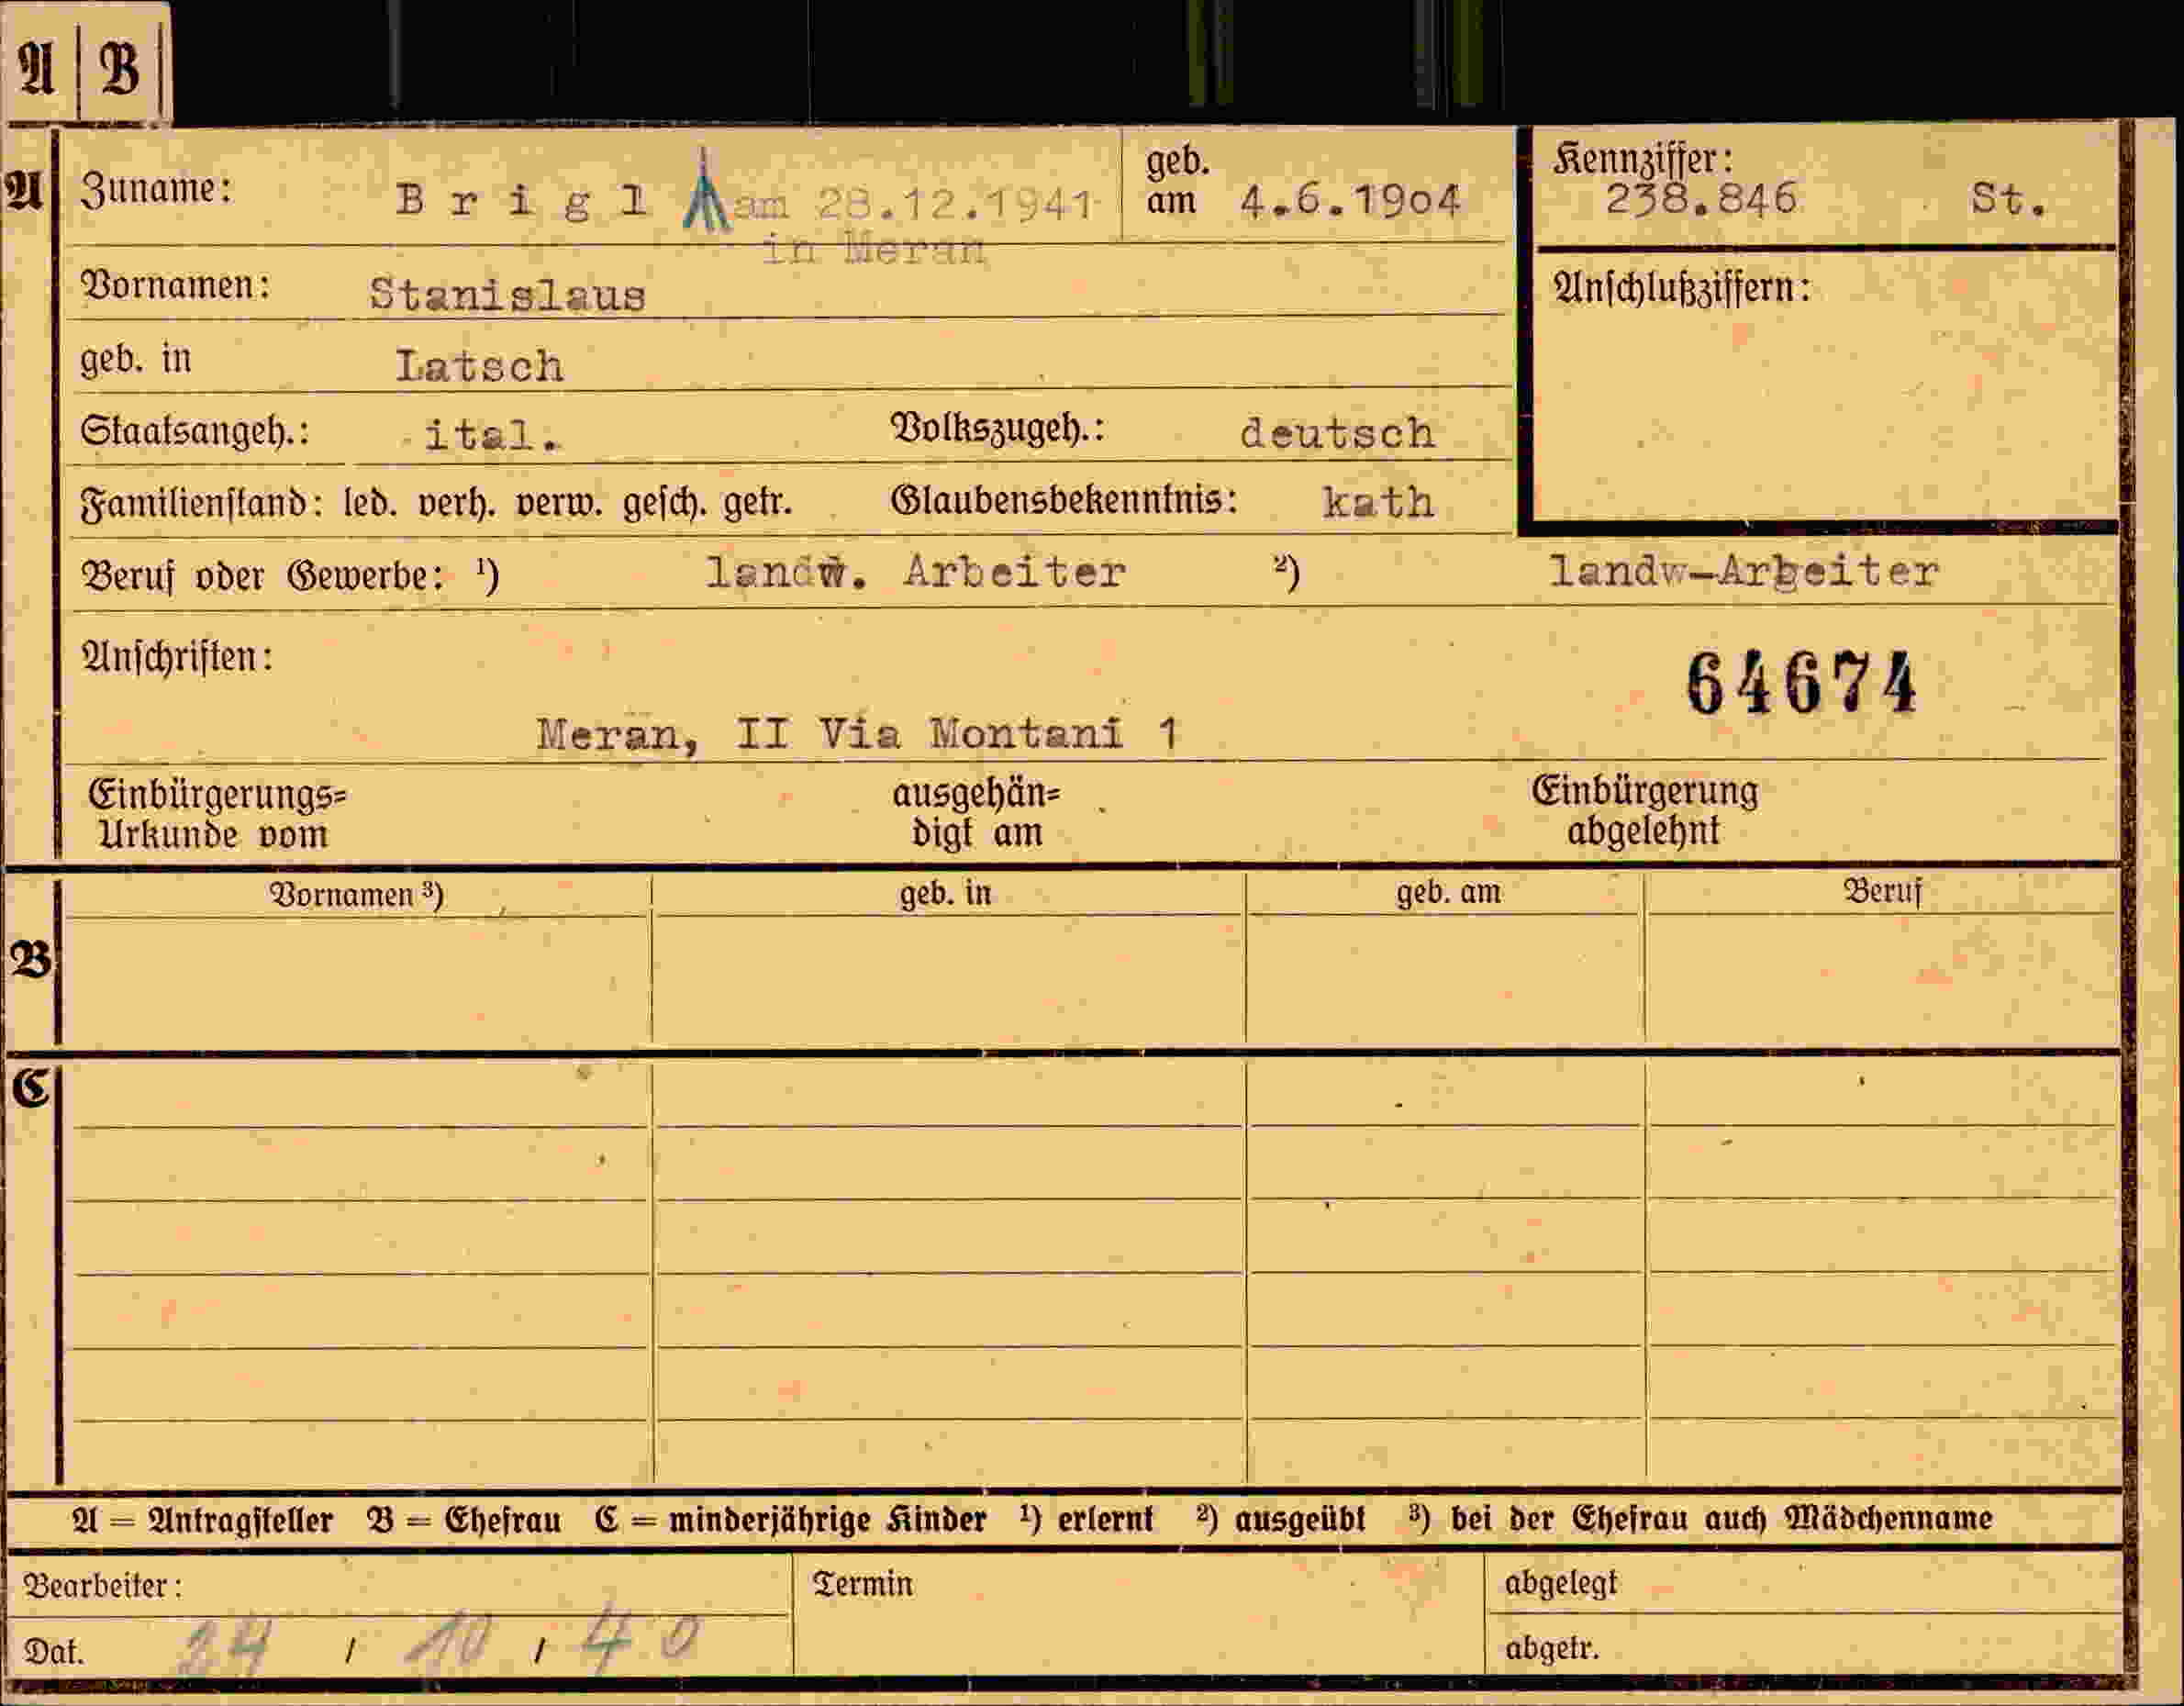 A B
A Zuname: Brigl am 28.12.1941 geb. am 4.6.1904 Kennziffer: 238.846 St.
in Meran
Vornamen: Stanislaus Anschlußziffern:
geb. in Latsch
Staatsangeh.: ital. Volkszugeh.: deutsch
Familienstand: led. verh. verw. gesch. getr. Glaubensbekenntnis: kath
Beruf oder Gewerbe: ¹) landw. Arbeiter ²) landw-Arbeiter
Anschriften: 64674
Meran, II Via Montani 1
Einbürgerungs= ausgehän= Einbürgerung
Urkunde vom digt am abgelehnt
Vornamen ³) geb. in geb. am Beruf
B
C
A = Antragsteller B = Ehefrau C = minderjährige Kinder ¹) erlernt ²) ausgeübt ³) bei der Ehefrau auch Mädchenname
Bearbeiter: Termin abgelegt
Dat. / 10 / 40 abgetr.